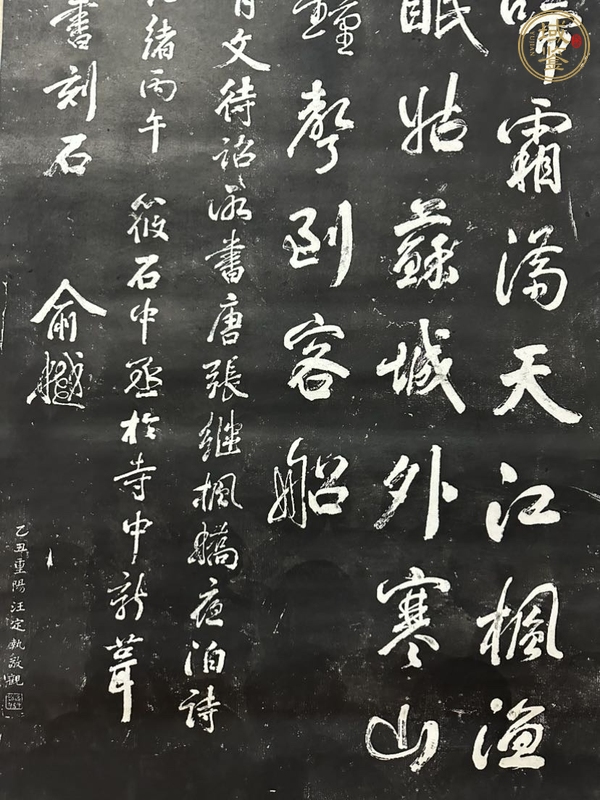 啼霜满天江枫渔
眠姑蘇城外寒山
鐘聲到客船
有文待詔所書唐張継楓橋夜泊詩
光緒丙午 筱石中丞於寺中新葺
書刻石
俞樾
乙丑重陽汪定執敬觀